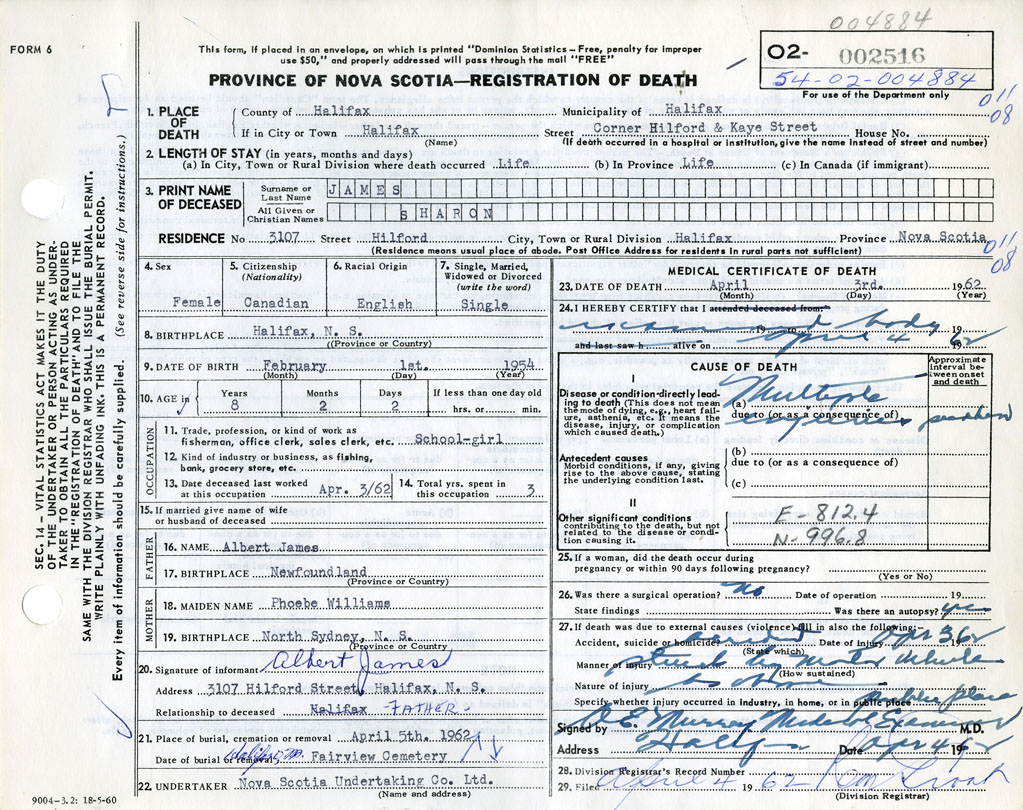 004884
FORM 6
This form, if placed in an envelope, on which is printed "Dominion Statistics—Free, penalty for improper
use $50," and properly addressed will pass through the mail "FREE"
O2- 002516
54-02-004884
For use of the Department only
PROVINCE OF NOVA SCOTIA—REGISTRATION OF DEATH
011
08
1. PLACE OF DEATH
County of Halifax Municipality of Halifax
If in City or Town Halifax Street Corner Hilford & Kaye Street House No.
(Name) (If death occurred in a hospital or institution, give the name instead of street and number)
2. LENGTH OF STAY (in years, months and days)
(a) In City, Town or Rural Division where death occurred Life (b) In Province Life (c) In Canada (if immigrant)
3. PRINT NAME OF DECEASED
Surname or Last Name JAMES
All Given or Christian Names SHARON
RESIDENCE No 3107 Street Hilford City, Town or Rural Division Halifax Province Nova Scotia
(Residence means usual place of abode. Post Office Address for residents in rural parts not sufficient)
011
08
4. Sex
Female
5. Citizenship
(Nationality)
Canadian
6. Racial Origin
English
7. Single, Married,
Widowed or Divorced
(write the word)
Single
8. BIRTHPLACE Halifax, N. S.
((Province or Country)
9. DATE OF BIRTH February 1st. 1954
(Month) (Day) (Year)
10. AGE in
Years Months Days If less than one day old
8 2 2 hrs. or min.
OCCUPATION
11. Trade, profession, or kind of work as
fisherman, office clerk, sales clerk, etc. School-girl
12. Kind of industry or business, as fishing,
bank, grocery store, etc.
13. Date deceased last worked
at this occupation Apr. 3/62
14. Total yrs. spent in
this occupation 3
15. If married give name of wife
or husband of deceased
FATHER
16. NAME Albert James
17. BIRTHPLACE Newfoundland
(Province or Country)
MOTHER
18. MAIDEN NAME Phoebe Williams
19. BIRTHPLACE North Sydney, N. S.
(Province or Country)
20. Signature of informant Albert James
Address 3107 Hilford Street, Halifax, N. S.
Relationship to deceased Halifax FATHER-
21. Place of burial, cremation or removal April 5th. 1962
Date of burial or removal Fairview Cemetery
22. UNDERTAKER Nova Scotia Undertaking Co. Ltd.
(Name and address)
9004-3.2: 18-5-60
MEDICAL CERTIFICATE OF DEATH
23. DATE OF DEATH April 3rd. 1962
(Month) (Day) (Year)
24. I HEREBY CERTIFY that I attended deceased from:
body
19 to 19
and last saw h alive on April 4 1962
CAUSE OF DEATH
Approximate
interval be-
tween onset
and death
I
Disease or condition directly lead-
ing to death (This does not mean
the mode of dying, e.g., heart fail-
ure, asthenia, etc. It means the
disease, injury, or complication
which caused death.)
(a) Multiple
due to (or as a consequence of)
injuries
Antecedent causes
Morbid conditions, if any, giving
rise to the above cause, stating
the underlying condition last.
(b)
due to (or as a consequence of)
(c)
II
Other significant conditions
contributing to the death, but not
related to the disease or condi-
tion causing it.
E-812.4
N-996.8
25. If a woman, did the death occur during
pregnancy or within 90 days following pregnancy?
(Yes or No)
26. Was there a surgical operation? No Date of operation 19
State findings Was there an autopsy? yes
27. If death was due to external causes (violence) fill in also the following:—
Accident, suicide or homicide? accident Date of injury Apr 3 62
(State which)
Manner of injury struck by motor vehicle
(How sustained)
Nature of injury as above
Specify whether injury occurred in industry, in home, or in public place public place
Signed by Murray Medical Examiner M.D.
Address Halifax Date Apr 4 1962
28. Division Registrar's Record Number
29. Filed April 4 1962
(Division Registrar)
SEC. 14—VITAL STATISTICS ACT MAKES IT THE DUTY
OF THE UNDERTAKER OR PERSON ACTING AS UNDER-
TAKER TO OBTAIN ALL THE PARTICULARS REQUIRED
IN THE "REGISTRATION OF DEATH" AND TO FILE THE
SAME WITH THE DIVISION REGISTRAR WHO SHALL ISSUE THE BURIAL PERMIT.
WRITE PLAINLY WITH UNFADING INK. THIS IS A PERMANENT RECORD.
Every item of information should be carefully supplied. (See reverse side for instructions.)